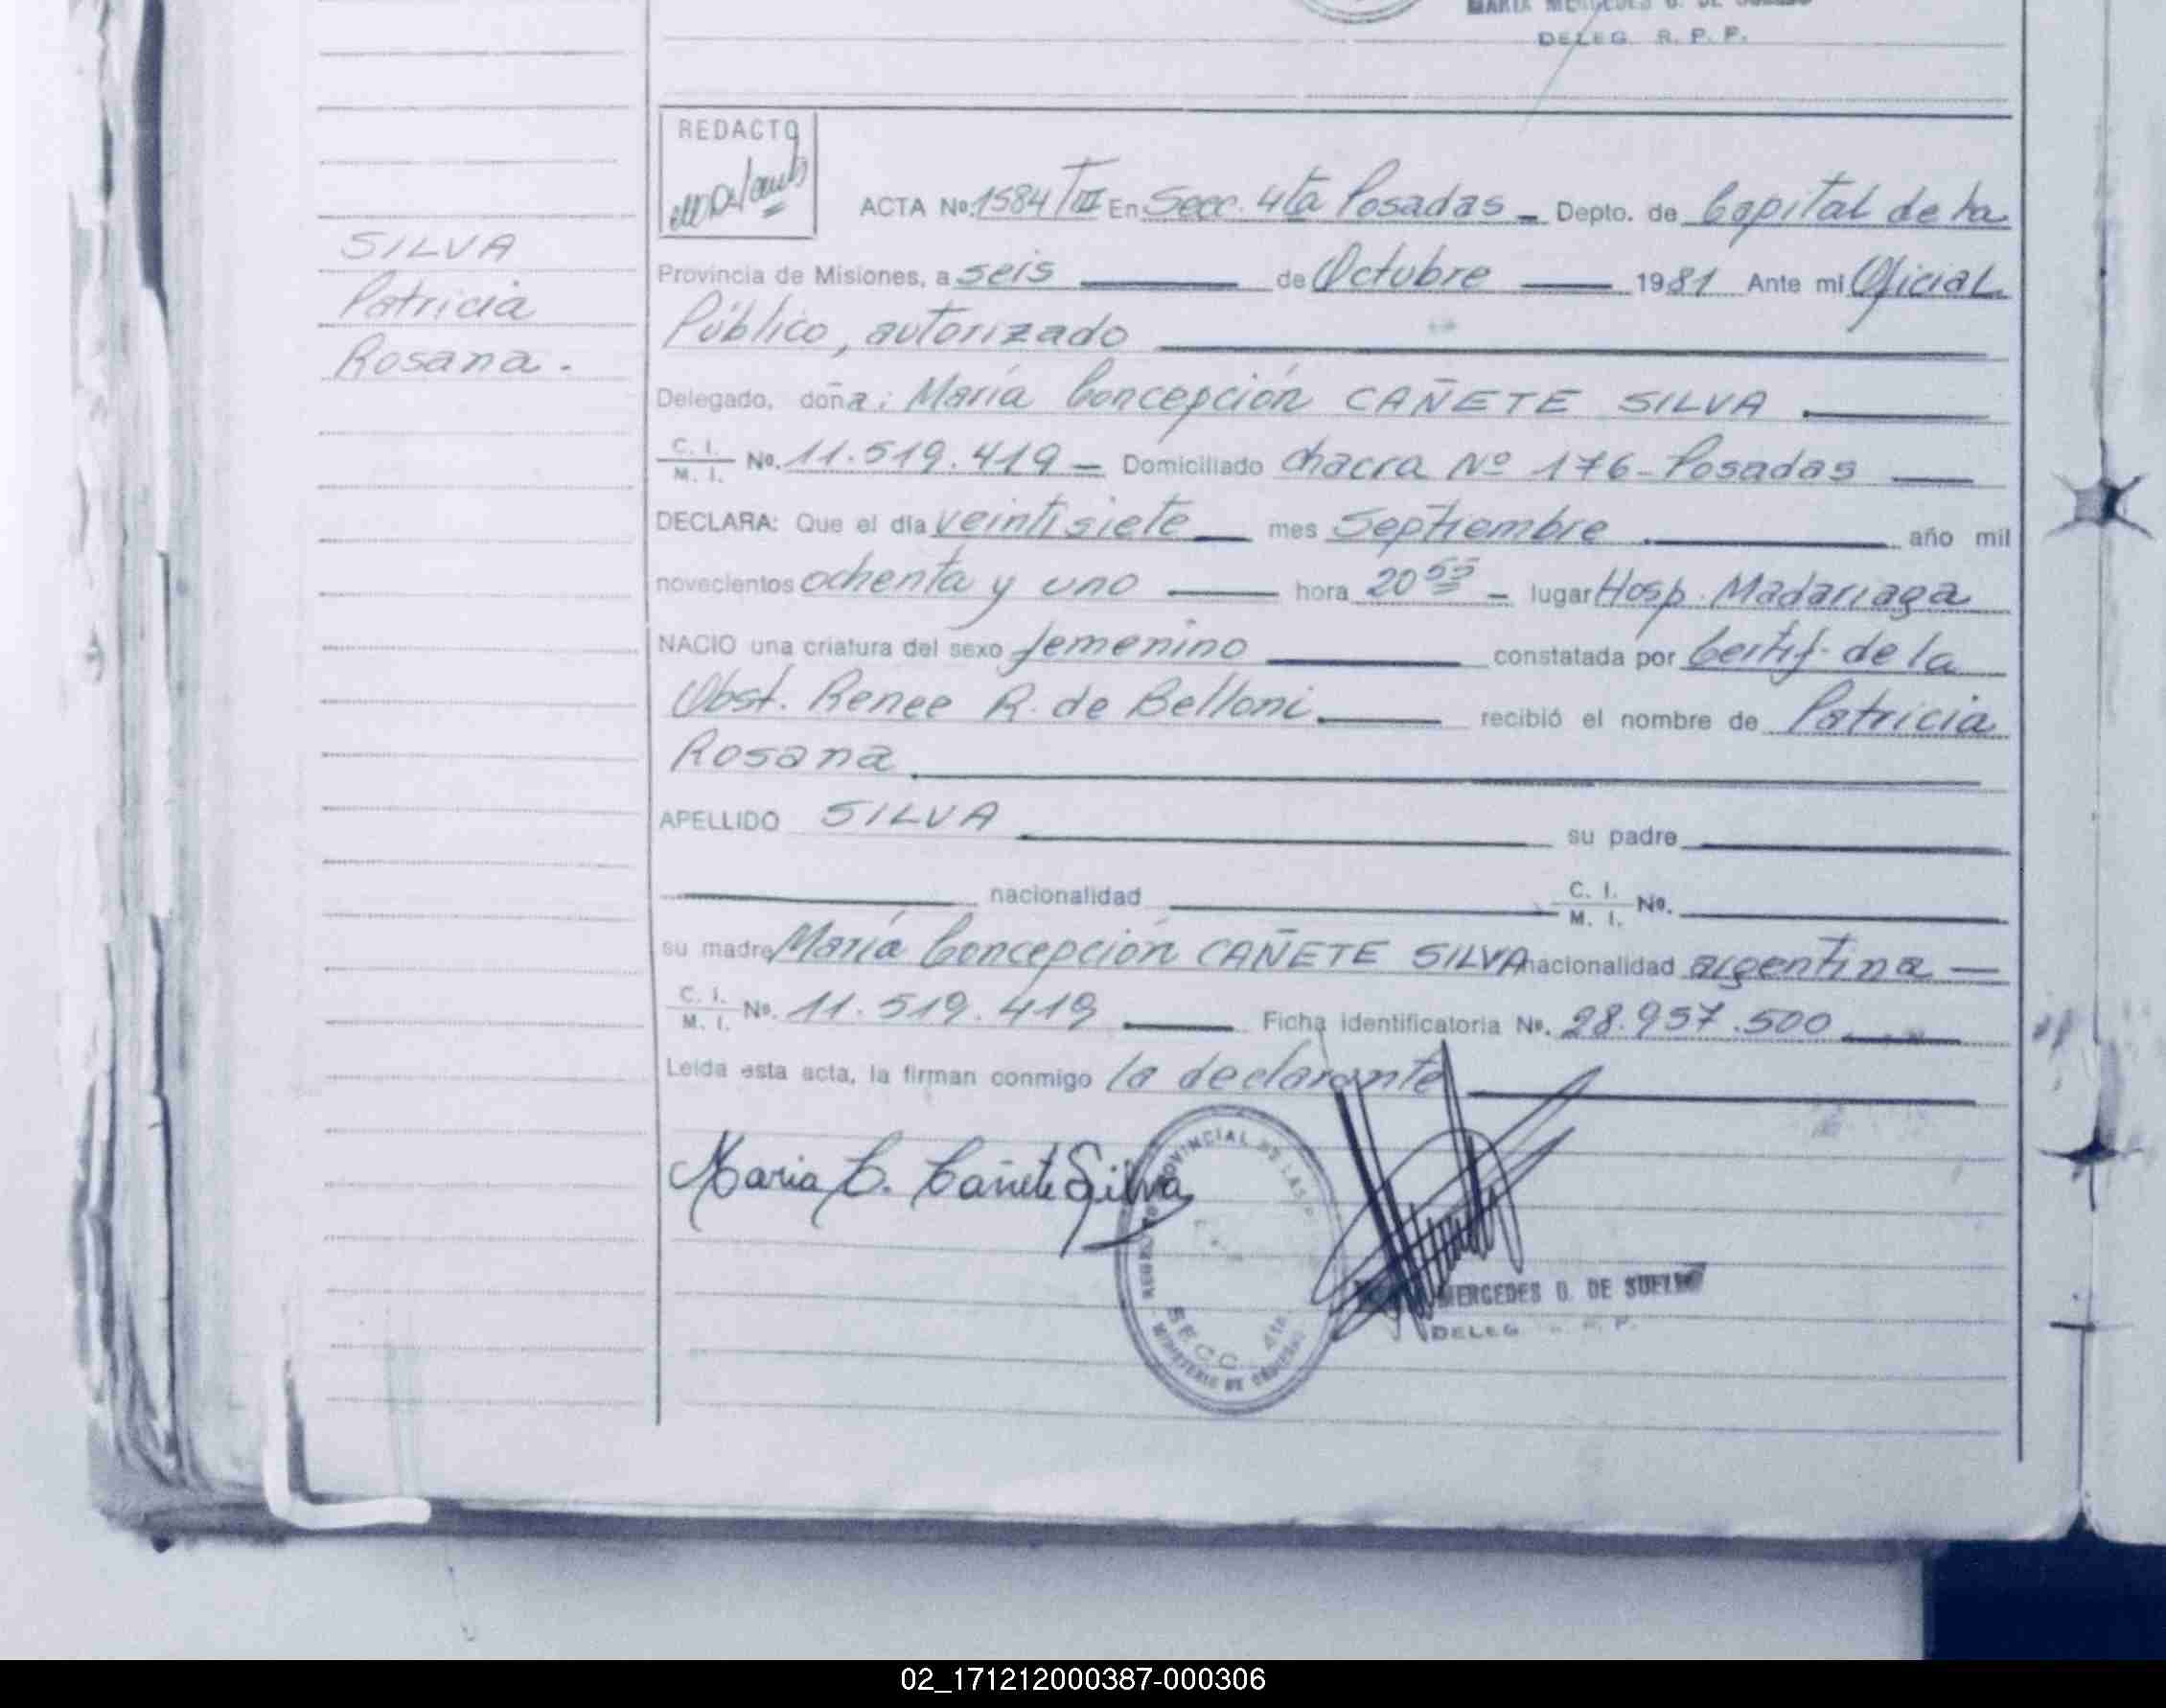 DELEG. R. P. P.
REDACTO
ACTA Nº. 1584/TIII En Secc. 4ta Posadas - Depto. de Capital de la
SILVA
Patricia
Rosana.
Provincia de Misiones, a seis de Octubre 1981 Ante mi Oficial
Público, autorizado
Delegado, doña: María Concepción CAÑETE SILVA.
C. I. / M. I. Nº. 11.519.419 - Domiciliado Chacra Nº 176 - Posadas
DECLARA: Que el día veintisiete mes Septiembre. año mil
novecientos ochenta y uno hora 20 55 - lugar Hosp. Madariaga
NACIO una criatura del sexo femenino constatada por Certif. de la
Obst. Renee R. de Belloni. recibió el nombre de Patricia
Rosana.
APELLIDO SILVA su padre
nacionalidad C. I. / M. I. Nº.
su madre María Concepción CAÑETE SILVA nacionalidad argentina
C. I. / M. I. Nº. 11.519.419 Ficha identificatoria Nº. 28.957.500
Leída esta acta, la firman conmigo la declarante
Maria C. Cañete Silva
PROVINCIAL DE LAS
SECC. 4ta
MINISTERIO DE
MERCEDES G. DE SUELDO
DELEG. R. P.
02_171212000387-000306